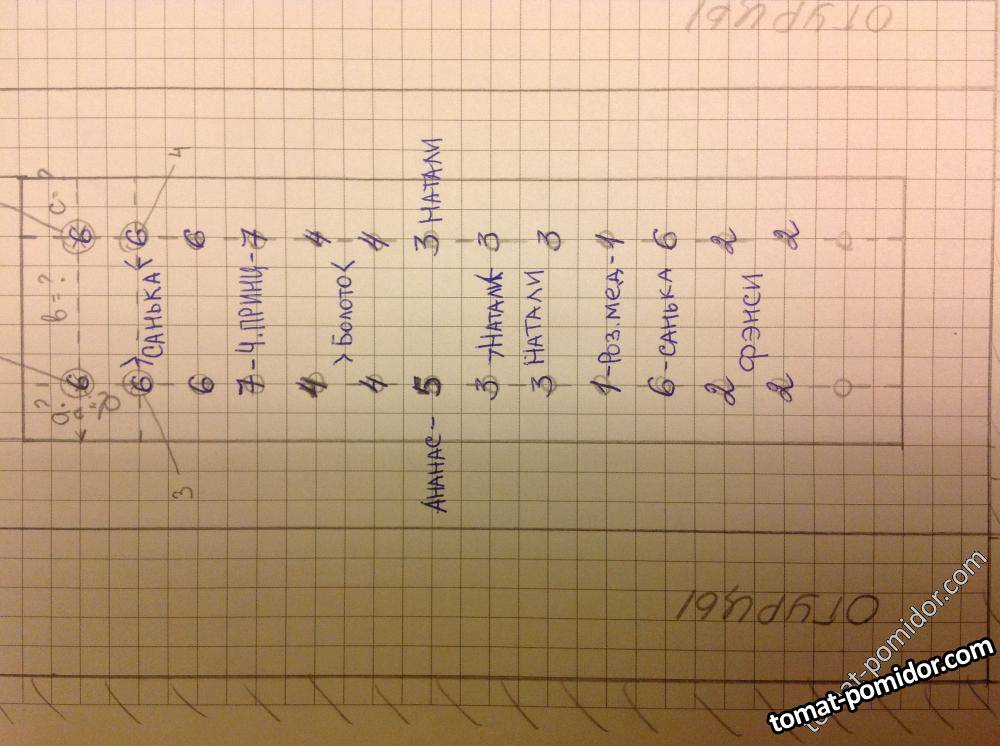 a=? b=? c=?
6 6
6 >САНЬКА< 6
3 4
6 6
7-Ч.ПРИНЦ-7
4 4
>БОЛОТО<
4 4
АНАНАС-5 3 НАТАЛИ
3 >НАТАЛИ 3
3 НАТАЛИ 3
1-РОЗ.МЕД-1
6-САНЬКА 6
2 2
ФЭНСИ
2 2
ОГУРЦЫ
ОГУРЦЫ
tomat-pomidor.com
tomat-pomidor.com